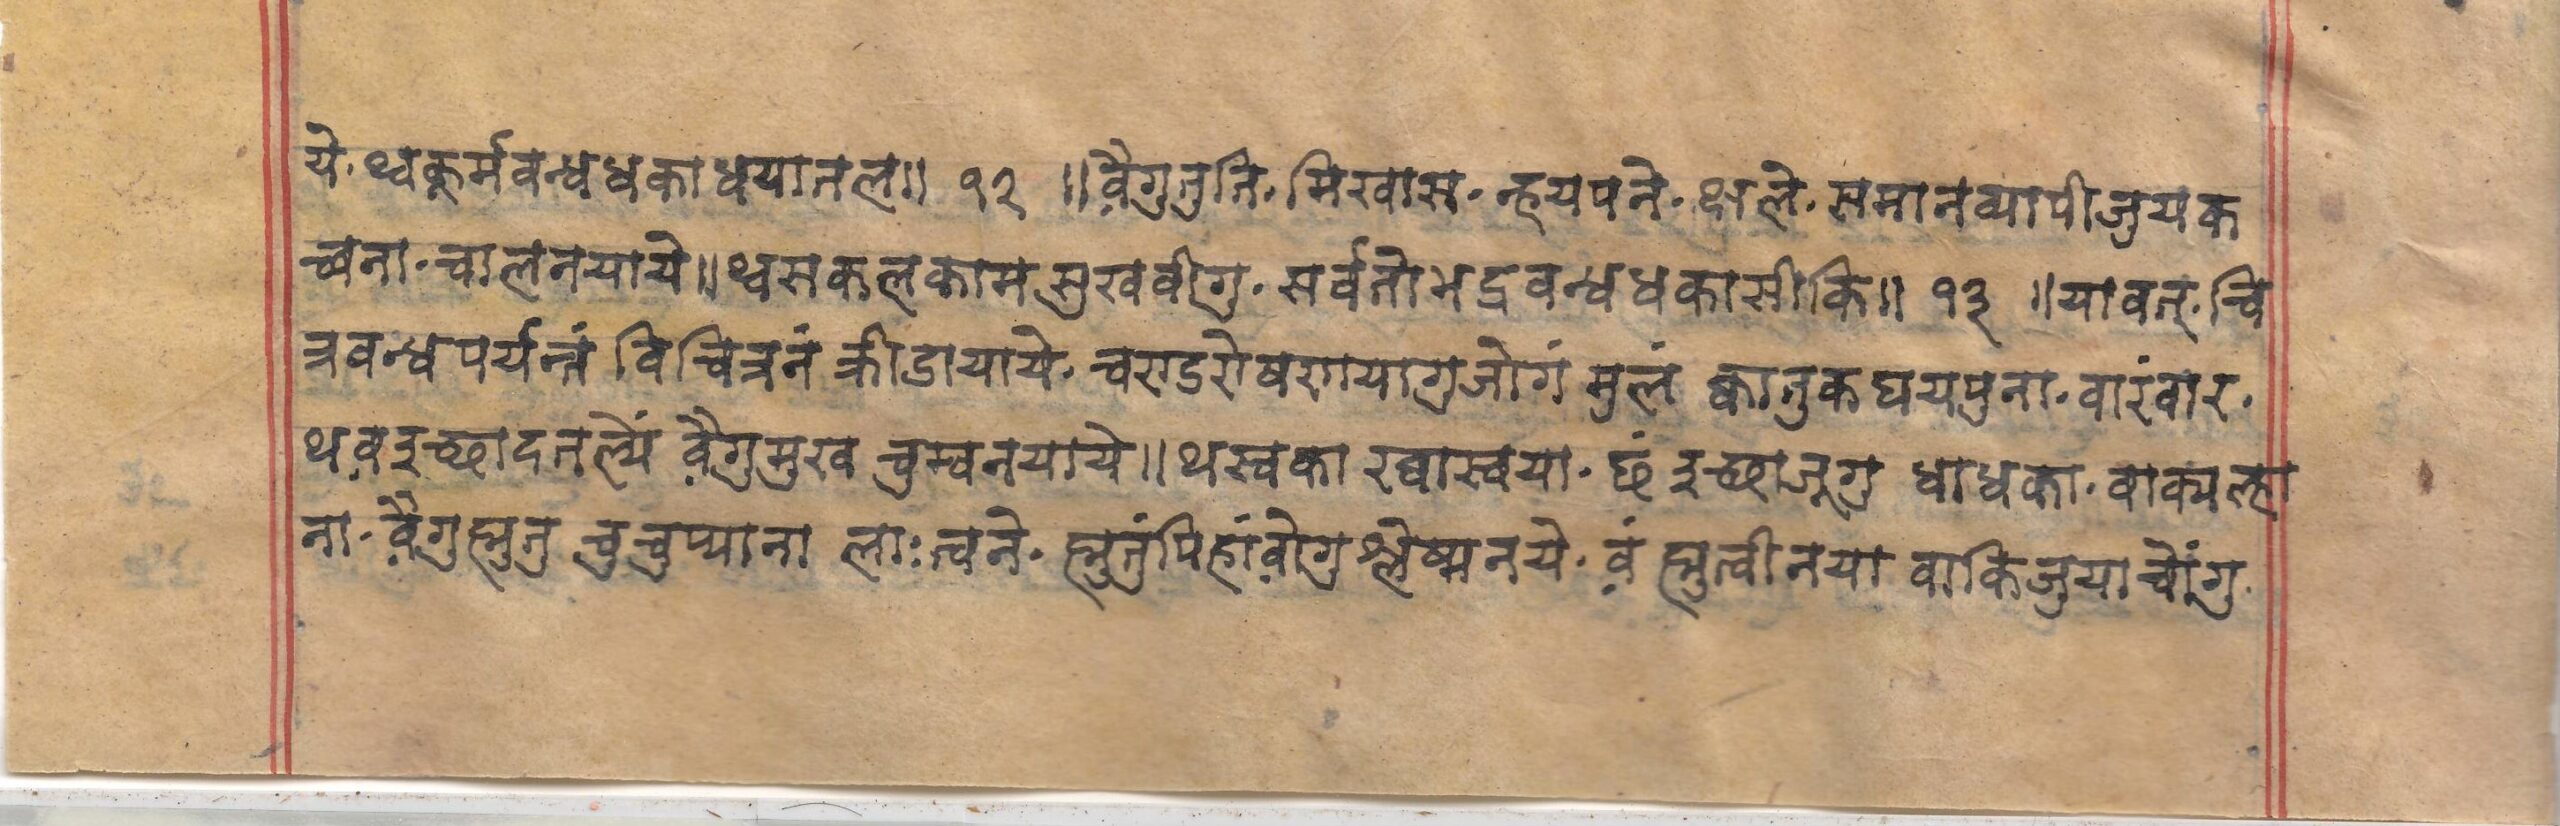 ये. थ्वकूर्मवन्धधकाधयातल॥ १२ ॥वे़गुतुति. मिखास. न्ह्यपने. क्षले. समानव्यापीजुयक
च्वना. चालनयाये॥थ्वसकलकामसुखवीगु. सर्वतोभद्रवन्धधकासीकि॥ १३ ॥यावत्. चि
त्रवन्धपर्यन्तं विचित्रनं क्रीडायाये. चण्डरोषणयागुजोगं मुलं कातुकघयपुना. वारंवार.
थव़इच्छादतल्ये वे़गुमुख चुम्वनयाये॥थस्वका रवास्वया. छं इच्छाजूगु धाधका. वाक्यल्हा
ना. वे़गुह्मुतु चुचुप्याना लाःत्वने. ह्मुतुंपिहांवो़गु श्लेष्मनये. वं़ ह्मुत्वीनया वाकिजुयाचोंगु.